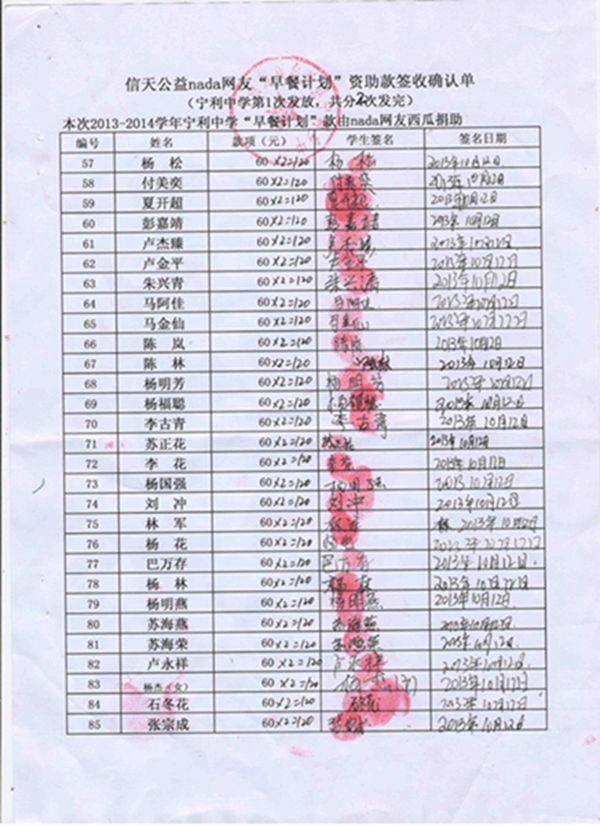 信天公益nada网友“早餐计划”资助款签收确认单
（宁利中学第1次发放，共分2次发完）
本次2013-2014学年宁利中学“早餐计划”款由nada网友西瓜捐助
编号 姓名 款项（元） 学生签名 签名日期
57 杨 松 60×2=120 杨 松 2013年10月12日
58 付美奕 60×2=120 付美奕 2013年10月12日
59 夏开超 60×2=120 夏开超 2013年10月12日
60 彭嘉靖 60×2=120 彭嘉靖 2013年10月12日
61 卢杰臻 60×2=120 2013年10月12日
62 卢金平 60×2=120 2013年10月12日
63 朱兴青 60×2=120 朱兴青 2013年10月12日
64 马阿佳 60×2=120 马阿佳 2013年10月12日
65 马金仙 60×2=120 2013年10月12日
66 陈 岚 60×2=120 2013年10月12日
67 陈 林 60×2=120 2013年10月12日
68 杨明芳 60×2=120 杨明芳 2013年10月12日
69 杨福聪 60×2=120 杨福聪 2013年10月12日
70 李古青 60×2=120 李古青 2013年10月12日
71 苏正花 60×2=120 2013年10月12日
72 李 花 60×2=120 李花 2013年10月12日
73 杨国强 60×2=120 杨国强 2013年10月12日
74 刘 冲 60×2=120 刘冲 2013年10月12日
75 林 军 60×2=120 2013年10月12日
76 杨 花 60×2=120 2013年10月12日
77 巴万存 60×2=120 巴万存 2013年10月12日
78 杨 林 60×2=120 杨林 2013年10月12日
79 杨明燕 60×2=120 杨明燕 2013年10月12日
80 苏海燕 60×2=120 苏海燕 2013年10月12日
81 苏海荣 60×2=120 2013年10月12日
82 卢永祥 60×2=120 卢永祥 2013年10月12日
83 杨杰（女） 60×2=120 2013年10月12日
84 石冬花 60×2=120 2013年10月12日
85 张宗成 60×2=120 2013年10月12日